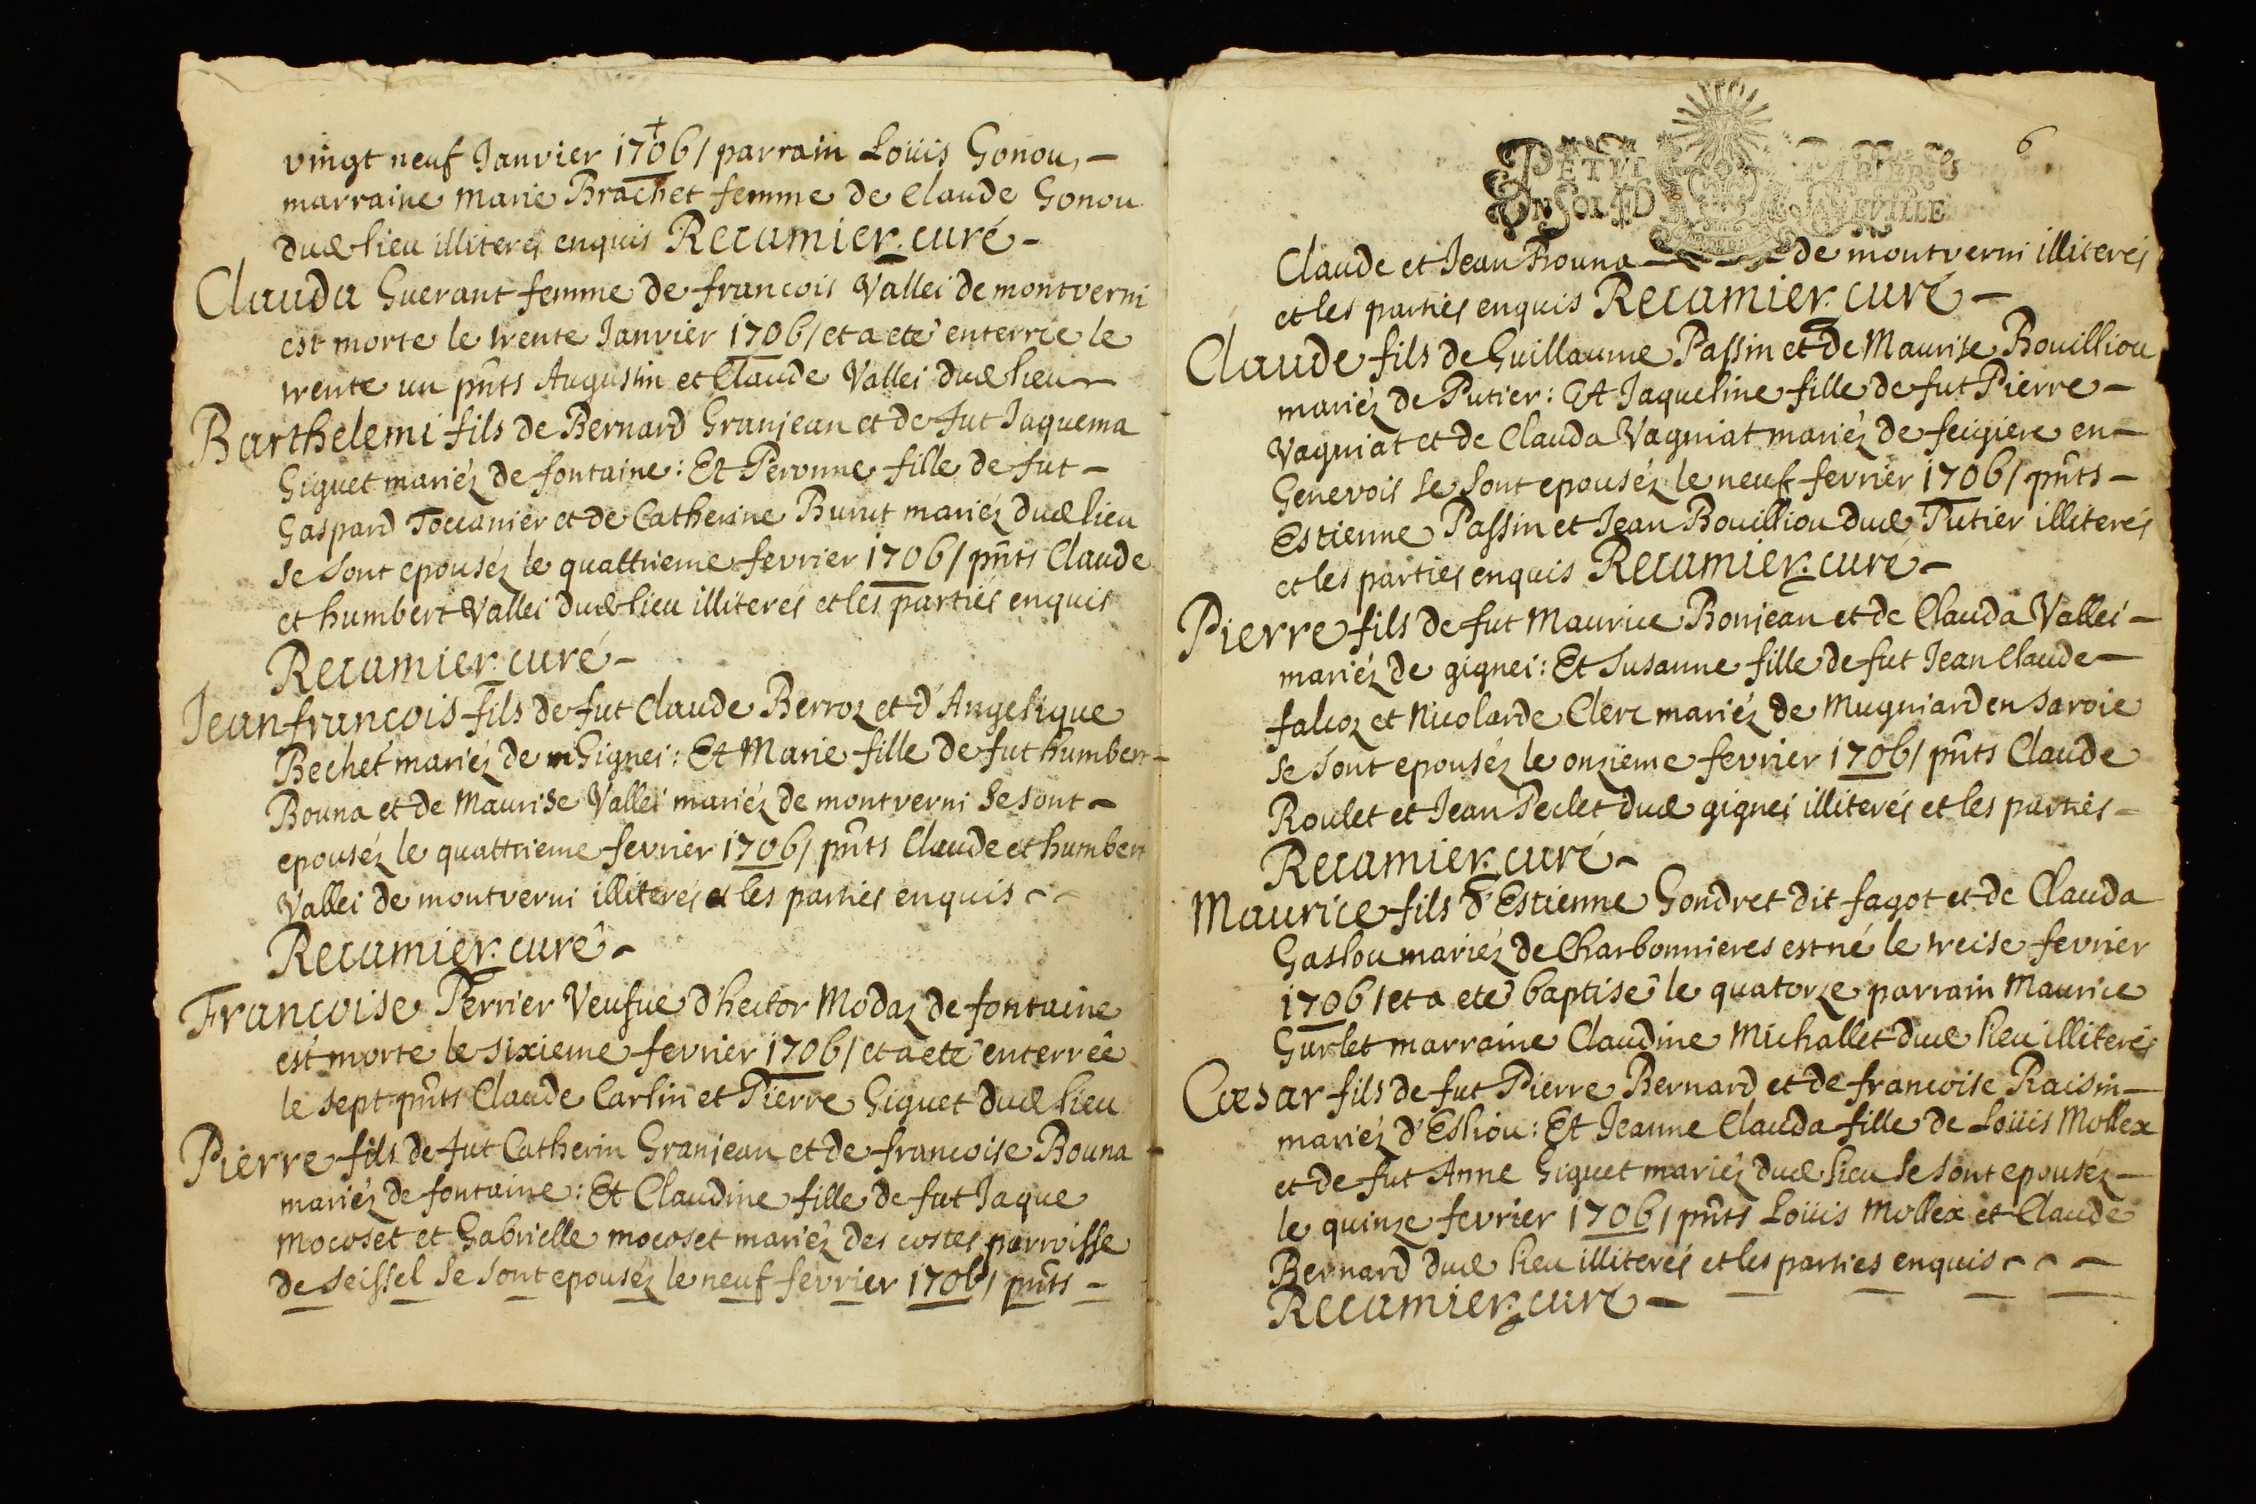 vingt neuf Janvier 1706/ parrain Loüis Gonou, -
marraine Marie Brachet femme de Claude Gonou
dud lieu illiteres enquis Recamier. curé -
Clauda Guerant femme de francois Vallei de montverni
est morte le trente Janvier 1706/ et a eté enterrée le
trente un pnts Augustin et Claude Vallei dud lieu -
Barthelemi fils de Bernard Granjean et de fut Jaquema
Giguet mariéz de fontaine: Et Peronne fille de fut -
Gaspard Toccanier et de Catherine Burut mariéz dud lieu
se sont epouséz le quattrieme fevrier 1706/ pnts Claude
et humbert Vallei dud lieu illiterés et les partiés enquis
Recamier. curé -
Jean francois fils de fut Claude Berroz et d'Angelique
Bechet mariéz de Gignei: Et Marie fille de fut humbert -
Bouna et de Maurise Vallei mariéz de montverni se sont -
epouséz le quattrieme fevrier 1706/ pnts Claude et humbert
Vallei de montverni illiterés et les parties enquis - -
Recamier. curé -
Francoise Perrier Veufue d'hector Modaz de fontaine
est morte le sixieme fevrier 1706/ et a eté enterrée
le sept pnts Claude Carlin et Pierre Giguet dud lieu
Pierre fils de fut Catherin Granjean et de francoise Bouna -
mariéz de fontaine: Et Claudine fille de fut Jaque
Mocoset et Gabrielle mocoset mariéz des costes parroisse
de Seissel se sont epouséz le neuf fevrier 1706/ pnts -
6
PETIT PAPIER
UN SOL 4 D LA FEUILLE
Claude et Jean Bouna - de montverni illiterés
et les parties enquis Recamier. curé -
Claude fils de Guillaume Passin et de Maurise Bouilliou
mariéz de Putier: Et Jaqueline fille de fut Pierre -
Vagniat et de Clauda Vagniat mariéz de feigiere en -
Genevois se sont epouséz le neuf fevrier 1706/ pnts -
Estienne Passin et Jean Bouilliou dud Putier illiterés
et les parties enquis Recamier. curé -
Pierre fils de fut Maurice Bonjean et de Clauda Vallei -
mariéz de gignei: Et Susanne fille de fut Jean Claude -
falcoz et Nicolarde Clerc mariéz de Mugniard en Savoie
se sont epouséz le onzieme fevrier 1706/ pnts Claude
Roulet et Jean Peclet dud gignei illiterés et les parties -
Recamier. curé -
Maurice fils d'Estienne Gondret dit fagot et de Clauda
Gaslou mariéz de Charbonnieres est né le treise fevrier
1706/ et a eté baptisé le quatorze parrain Maurice
Gurlet marraine Claudine Michallet dud lieu illiterés
Cæsar fils de fut Pierre Bernard et de francoise Raisin -
mariéz d'Esliou: Et Jeanne Clauda fille de Loüis Mollex
et de fut Anne Giguet mariéz dud lieu se sont epouséz -
le quinze fevrier 1706/ pnts Loüis Mollex et Claude
Bernard dud lieu illiterés et les parties enquis - - -
Recamier. curé -